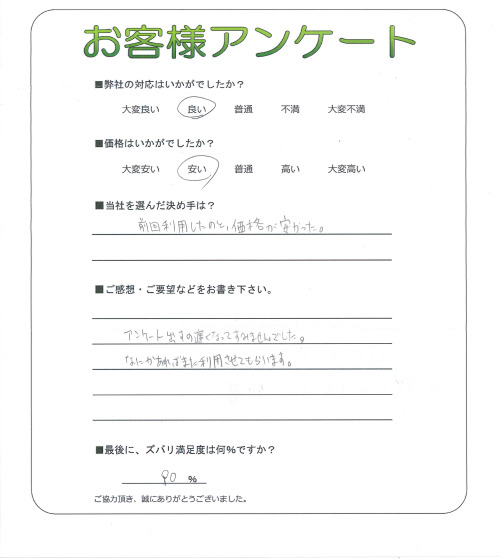 お客様アンケート
■弊社の対応はいかがでしたか？
大変良い 良い 普通 不満 大変不満
■価格はいかがでしたか？
大変安い 安い 普通 高い 大変高い
■当社を選んだ決め手は？
前回利用したのと、価格が安かった。
■ご感想・ご要望などをお書き下さい。
アンケート出すの遅くなってすみませんでした。
なにかあればまた利用させてもらいます。
■最後に、ズバリ満足度は何%ですか？
90 %
ご協力頂き、誠にありがとうございました。